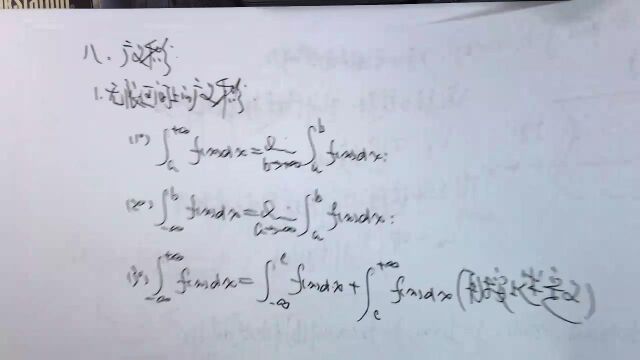 八、广义积分
1. 无限区间上的广义积分
(1°) ∫_a^{+∞} f(x)dx = lim_{b→+∞} ∫_a^b f(x)dx;
(2°) ∫_{-∞}^b f(x)dx = lim_{a→-∞} ∫_a^b f(x)dx;
(3°) ∫_{-∞}^{+∞} f(x)dx = ∫_{-∞}^c f(x)dx + ∫_c^{+∞} f(x)dx